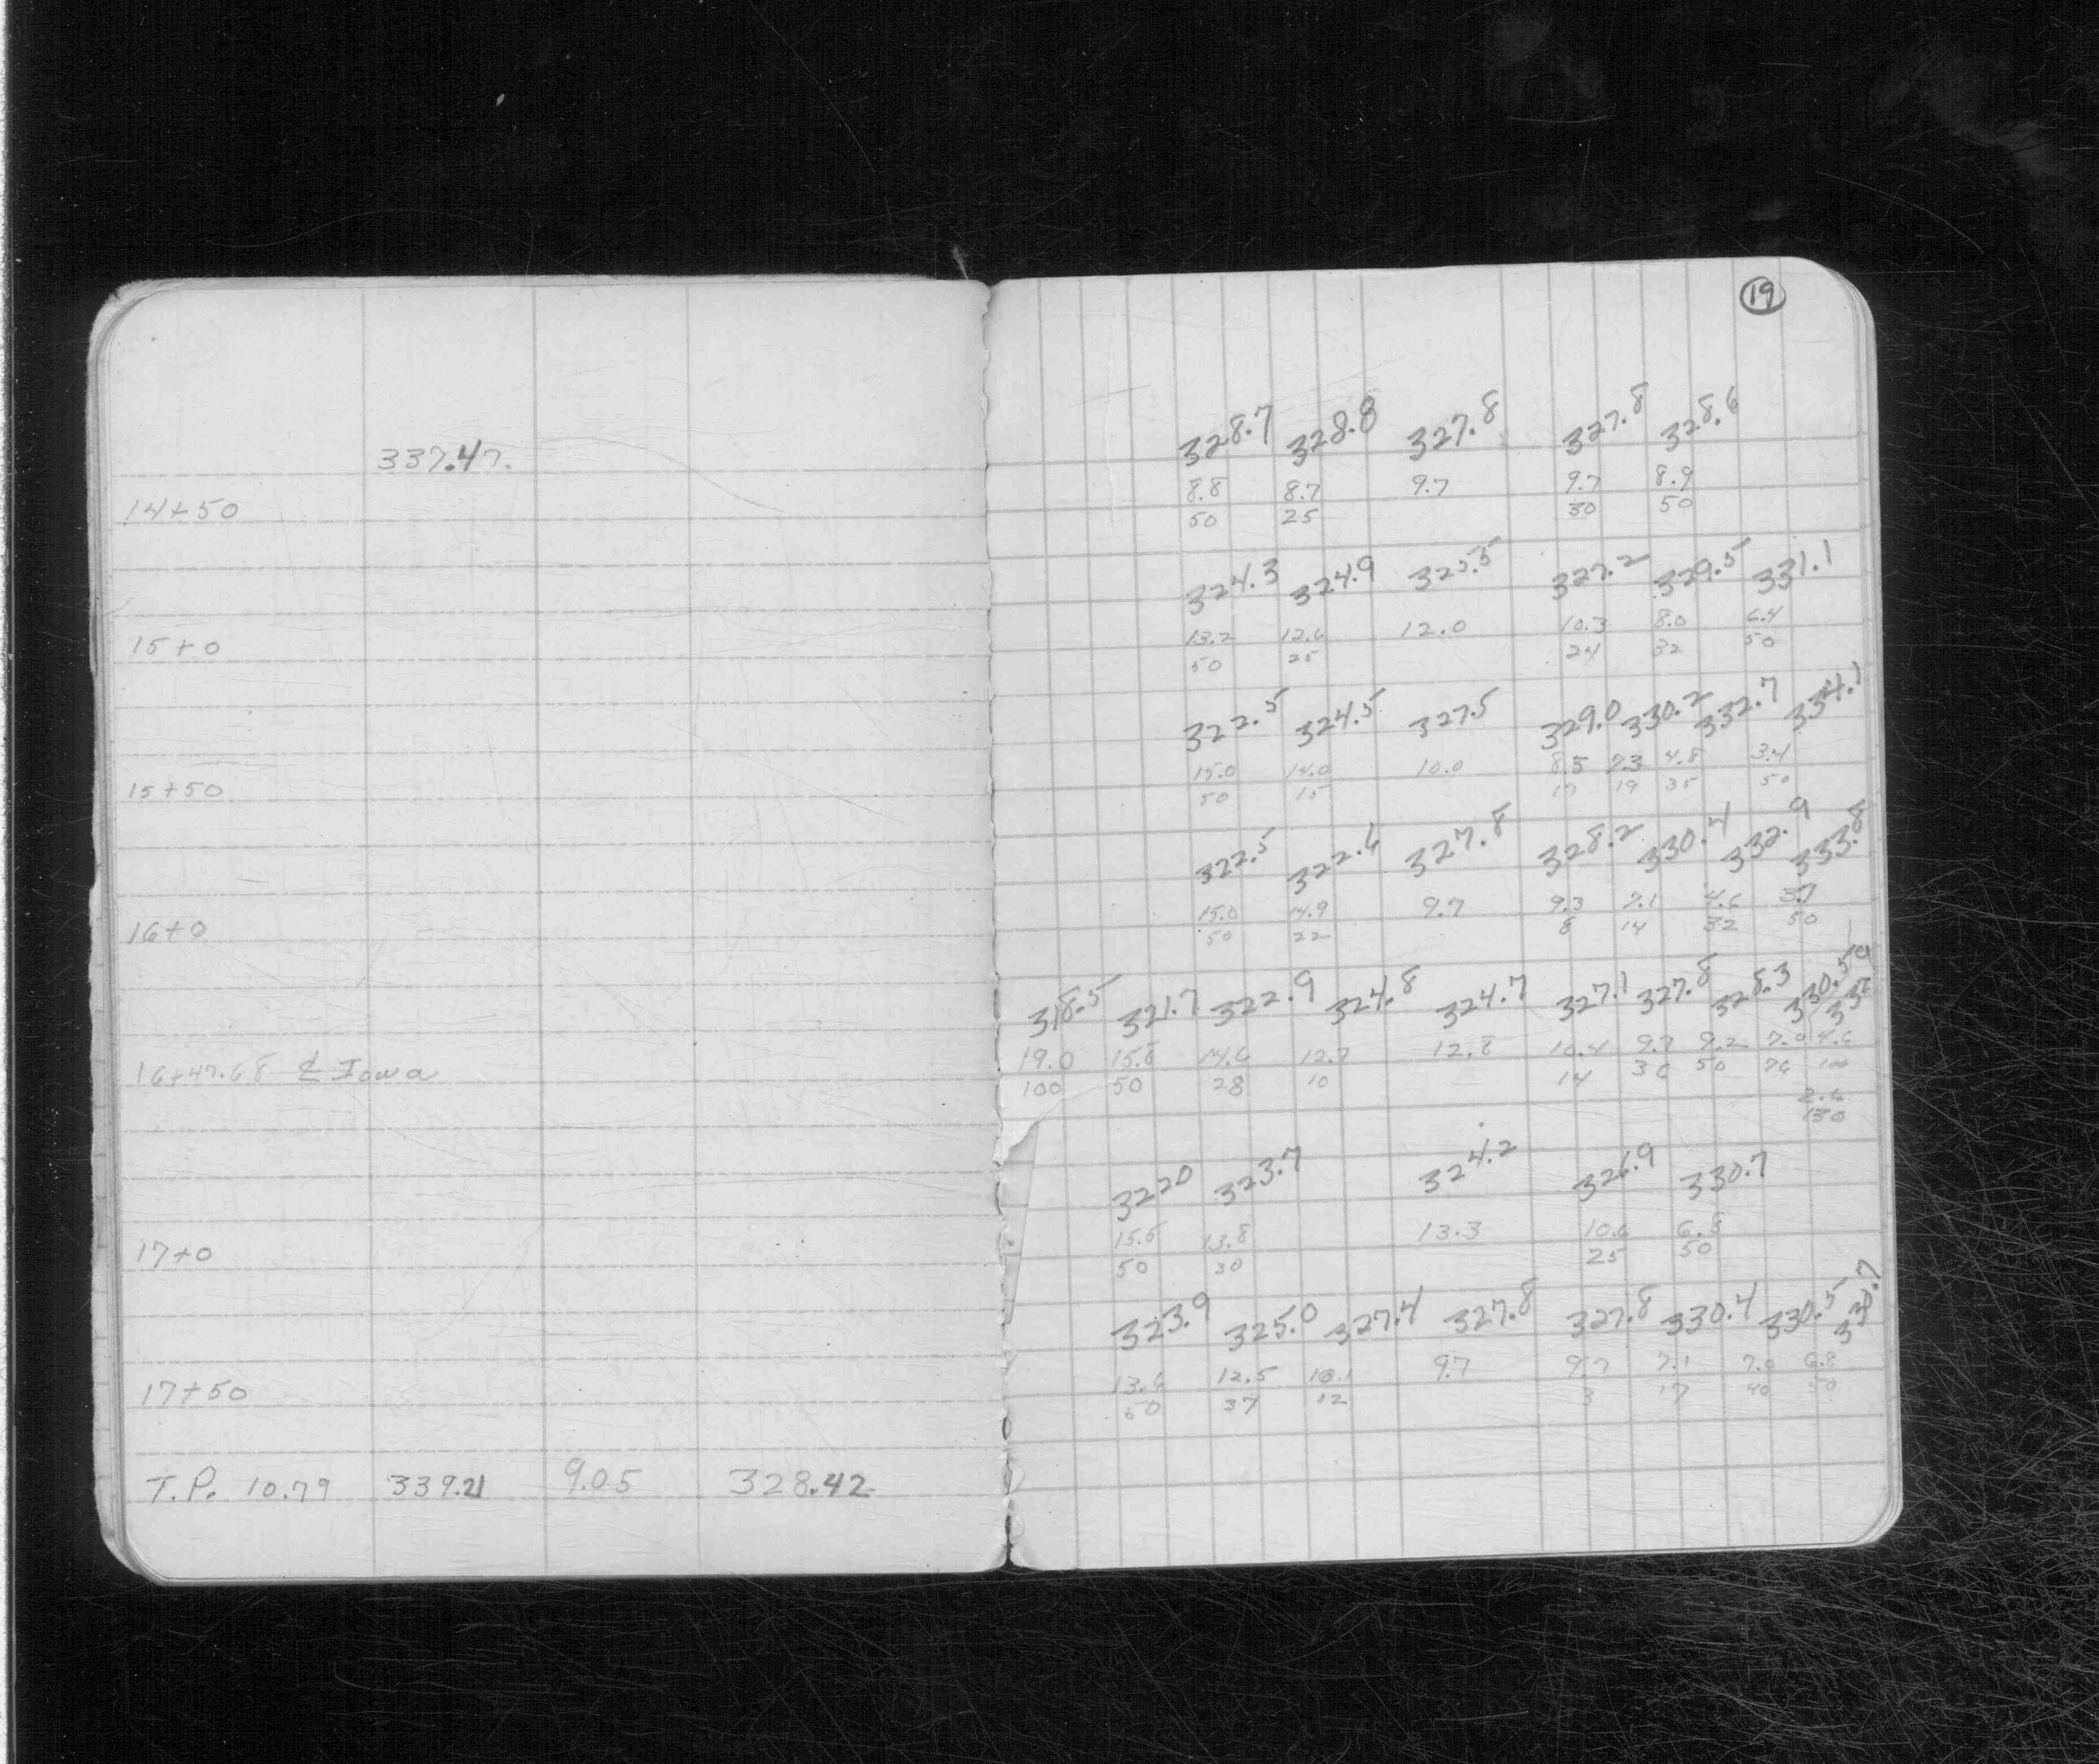 19
337.47
328.7 328.8 327.8 327.8 328.6
14+50 8.8 8.7 9.7 9.7 8.9
50 25 30 50
324.3 324.9 325.5 327.2 329.5 331.1
15+0 13.2 12.6 12.0 10.3 8.0 6.4
50 25 24 32 50
322.5 324.5 327.5 329.0 330.2 332.7 334.1
15+50 15.0 14.0 10.0 8.5 7.3 4.8 3.4
50 15 17 19 35 50
322.5 322.6 327.8 328.2 330.4 332.9 333.8
16+0 15.0 14.9 9.7 9.3 7.1 4.6 3.7
50 22 8 14 32 50
318.5 321.7 322.9 324.8 324.7 327.1 327.8 328.3 330.5
16+47.68 ℄ Iowa 19.0 15.8 14.6 12.7 12.8 10.4 9.7 9.2 7.0 4.6
100 50 28 10 14 36 50 76 100
2.6
130
322.0 323.7 324.2 326.9 330.7
17+0 15.5 13.8 13.3 10.6 6.8
50 30 25 50
323.9 325.0 327.4 327.8 327.8 330.4 330.5 330.7
17+50 13.6 12.5 10.1 9.7 9.7 7.1 7.0 6.8
50 37 12 3 17 40 50
T.P. 10.79 339.21 9.05 328.42